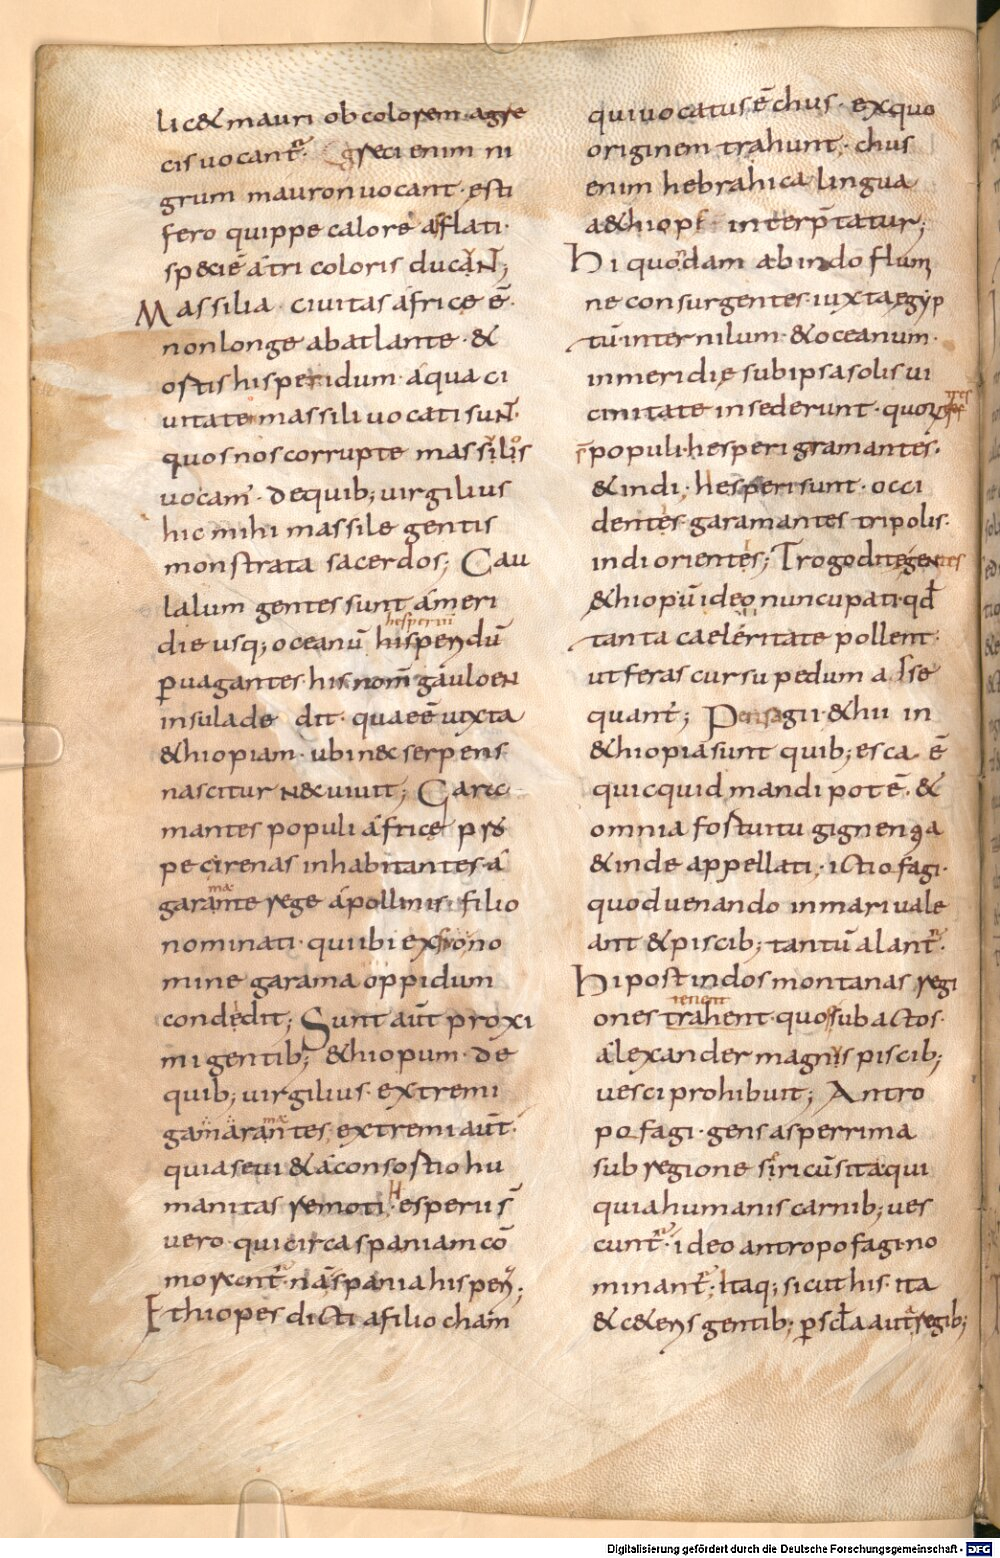 lic& mauri ob colorem agre
cis uocant̄ᷓ. greci enim ni
grum mauron uocant. esti
fero quippe calore afflati.
specię atri coloris ducaN̄;
Massilia. ciuitas africe ē.
non longe ab atlante. &
ostis hisperidum. a qua ci
uitate massili uocati suN̄.
quos nos corrupte massilos
uocam̄. de quib; uirgilius
hic mihi massile gentis
monstrata sacerdos; Gau
lalum gentes sunt ameri
die usq; oceanū hisperidū
hesperiū
ꝑuagantes. his nom̄ gauloeN
insula dedit. quae ē iuxta
&hiopiam. ubi nec serpens
nascitur Nec uiuit; Gare
mantes populi africę pro
pe cirenas inhabitantes. a
garante rege apollinis filio
mæ
nominati. qui ibi ex suo no
mine garama oppidum
condedit; Sunt aūt proxi
mi gentib; &hiopum. de
quib; uirgilius. extremi
gamarantes. extremi aūt.
mæ
quia seui & a consostio hu
manitas remoti. Hesperii s̄
uero qui circa spaniam cō
morant̄. nā spania hisper;
Ethiopes dicti a filio cham
qui uocatus ē chus. ex quo
originem trahunt. chus
enim hebrahica lingua
a&hiops interp̄tatur;
Hi quodam ab indo flum
ne consurgentes. iuxta egyp
tū. inter nilum. & oceanum.
in meridie sub ipsa solis ui
cinitate insederunt. quorꝫ
tres
s̄ populi. hesperi gramantes.
& indi; hesperi sunt. occi
dentes. garamantes tripolis.
indi orientes; Trogoditegentes
&hiopū ideo nuncupati. qd̄
tanta caeleritate pollent.
ut feras cursu pedum adse
quant̄; Pensagii. & hii in
&hiopia sunt quib; esca ē
quicquid mandi potē. &
omnia fostuitu gignenꝗa
& inde appellati. ictiofagi.
quod uenando in mari uale
ant & piscib; tantū alant̄.
Hi post indos montanas regi
ones trahent. quos subactos.
tenent
alexander magnus piscib;
uesci prohibuit; Antro
pofagi. gens asperrima
sub regione siricū sita qui
quia humanis carnib; ues
cunt̄. ideo antropofagi no
minant̄; Itaq; sicut his. ita
& c&erys gentib; ꝑ scl̄a aūt regib;
Digitalisierung gefördert durch die Deutsche Forschungsgemeinschaft - DFG